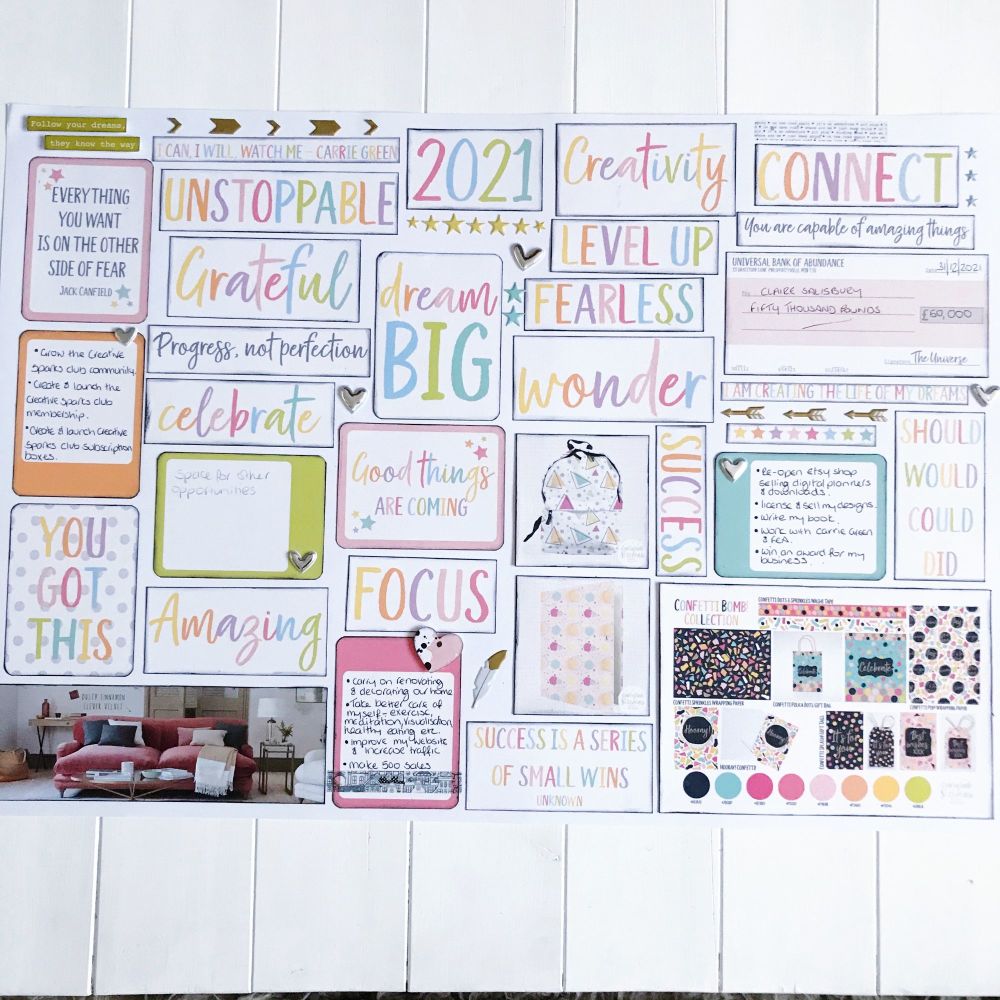 Follow your dreams,
they know the way
I CAN, I WILL, WATCH ME - CARRIE GREEN
2021
Creativity
CONNECT
EVERYTHING
YOU WANT
IS ON THE OTHER
SIDE OF FEAR
JACK CANFIELD
UNSTOPPABLE
Grateful
dream
BIG
LEVEL UP
FEARLESS
You are capable of amazing things
UNIVERSAL BANK OF ABUNDANCE
31/12/2021
CLAIRE SALISBURY
FIFTY THOUSAND POUNDS
£60,000
The Universe
I AM CREATING THE LIFE OF MY DREAMS
Progress, not perfection
celebrate
wonder
• Grow the Creative
Sparks club community.
• Create & launch the
Creative Sparks club
membership.
• Create & launch Creative
Sparks club subscription
boxes.
Space for other
opportunities
Good things
ARE COMING
SUCCESS
• Re-open Etsy shop
selling digital planners
& downloads.
• license & sell my designs.
• Write my book.
• Work with Carrie Green
& FEA.
• Win an award for my
business.
SHOULD
WOULD
COULD
DID
YOU
GOT
THIS
Amazing
FOCUS
DUSTY CINNAMON
CLEVER VELVET
• carry on renovating
& decorating our home
• Take better care of
myself - exercise,
meditation, visualisation,
healthy eating etc.
• Improve my website
& increase traffic
• make 500 sales
SUCCESS IS A SERIES
OF SMALL WINS
UNKNOWN
CONFETTI BOMB!
COLLECTION
CONFETTI DOTS & SPRINKLES WASHI TAPE
Celebrate
CONFETTI SPRINKLES WRAPPING PAPER
CONFETTI POLKA DOTS GIFT BAG
Hooray!
HOORAY! CONFETTI